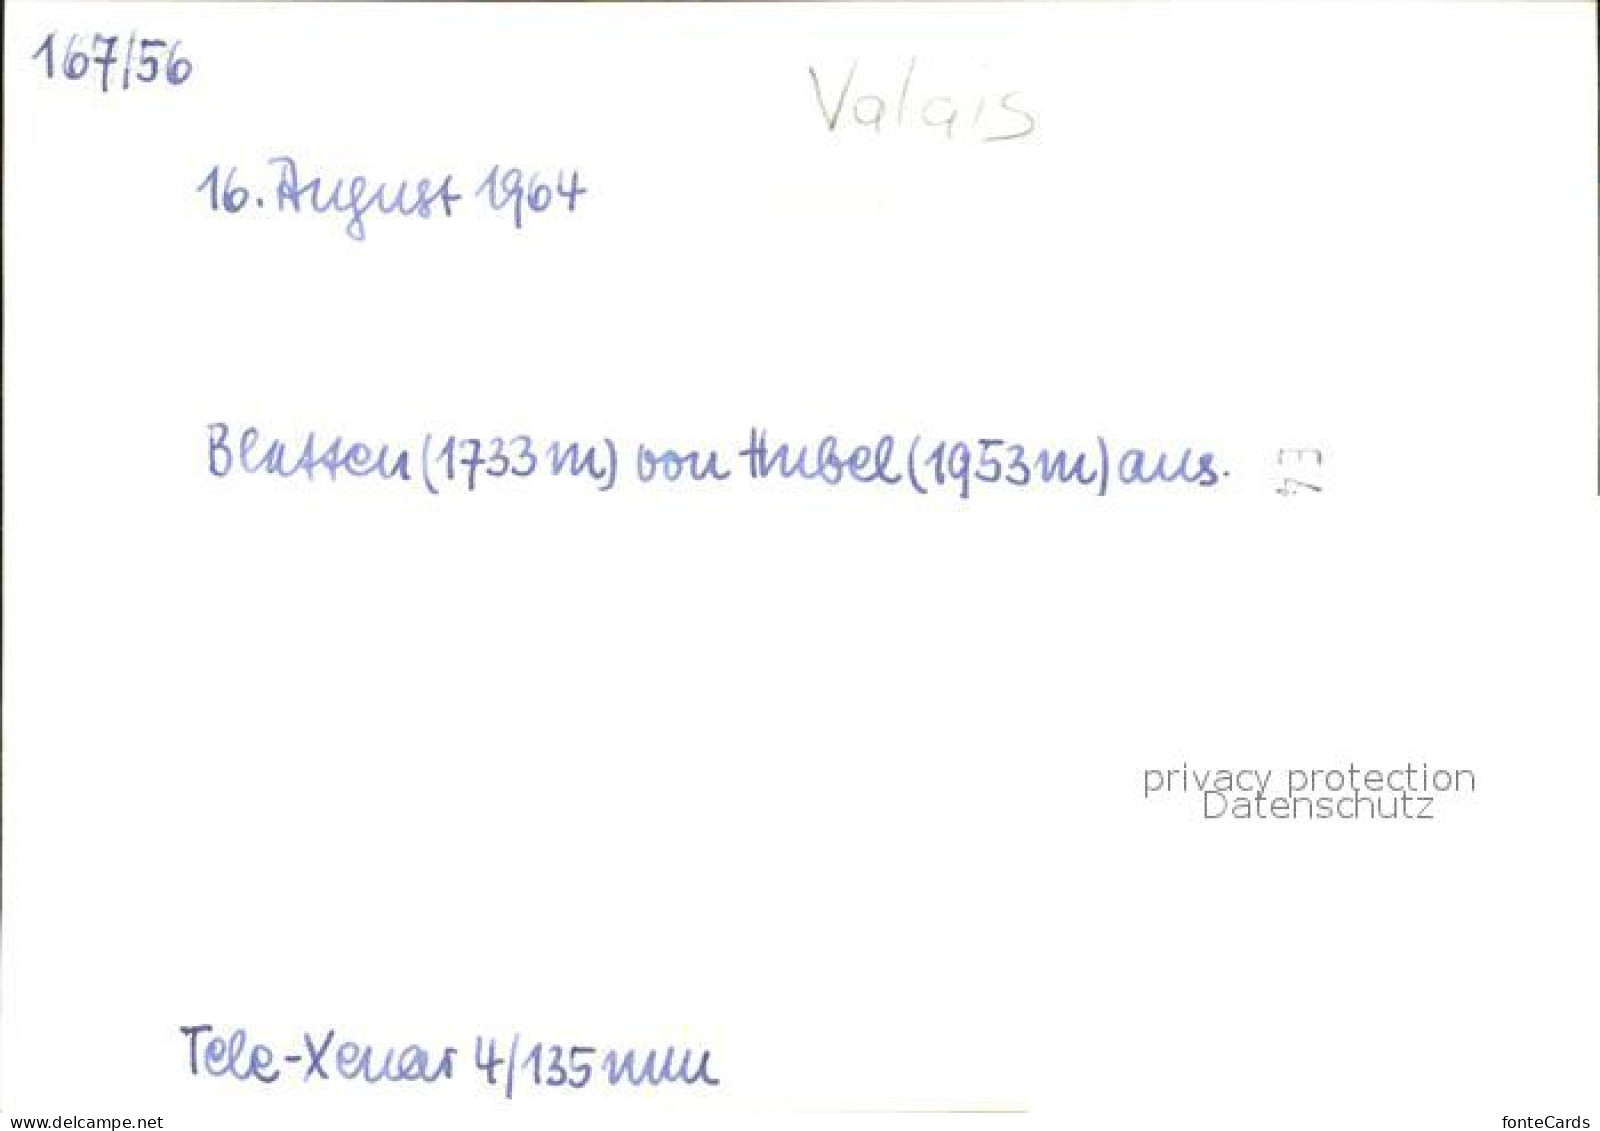 167/56
Valais
16. August 1964
Blatten (1733 m) von Hubel (1953 m) aus.
privacy protection
Datenschutz
Tele-Xenar 4/135 mm
www.delcampe.net
fonteCards